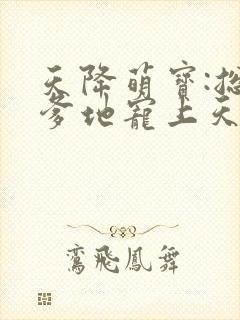 天降萌寶:總
爹地寵上天
鸞飛鳳舞